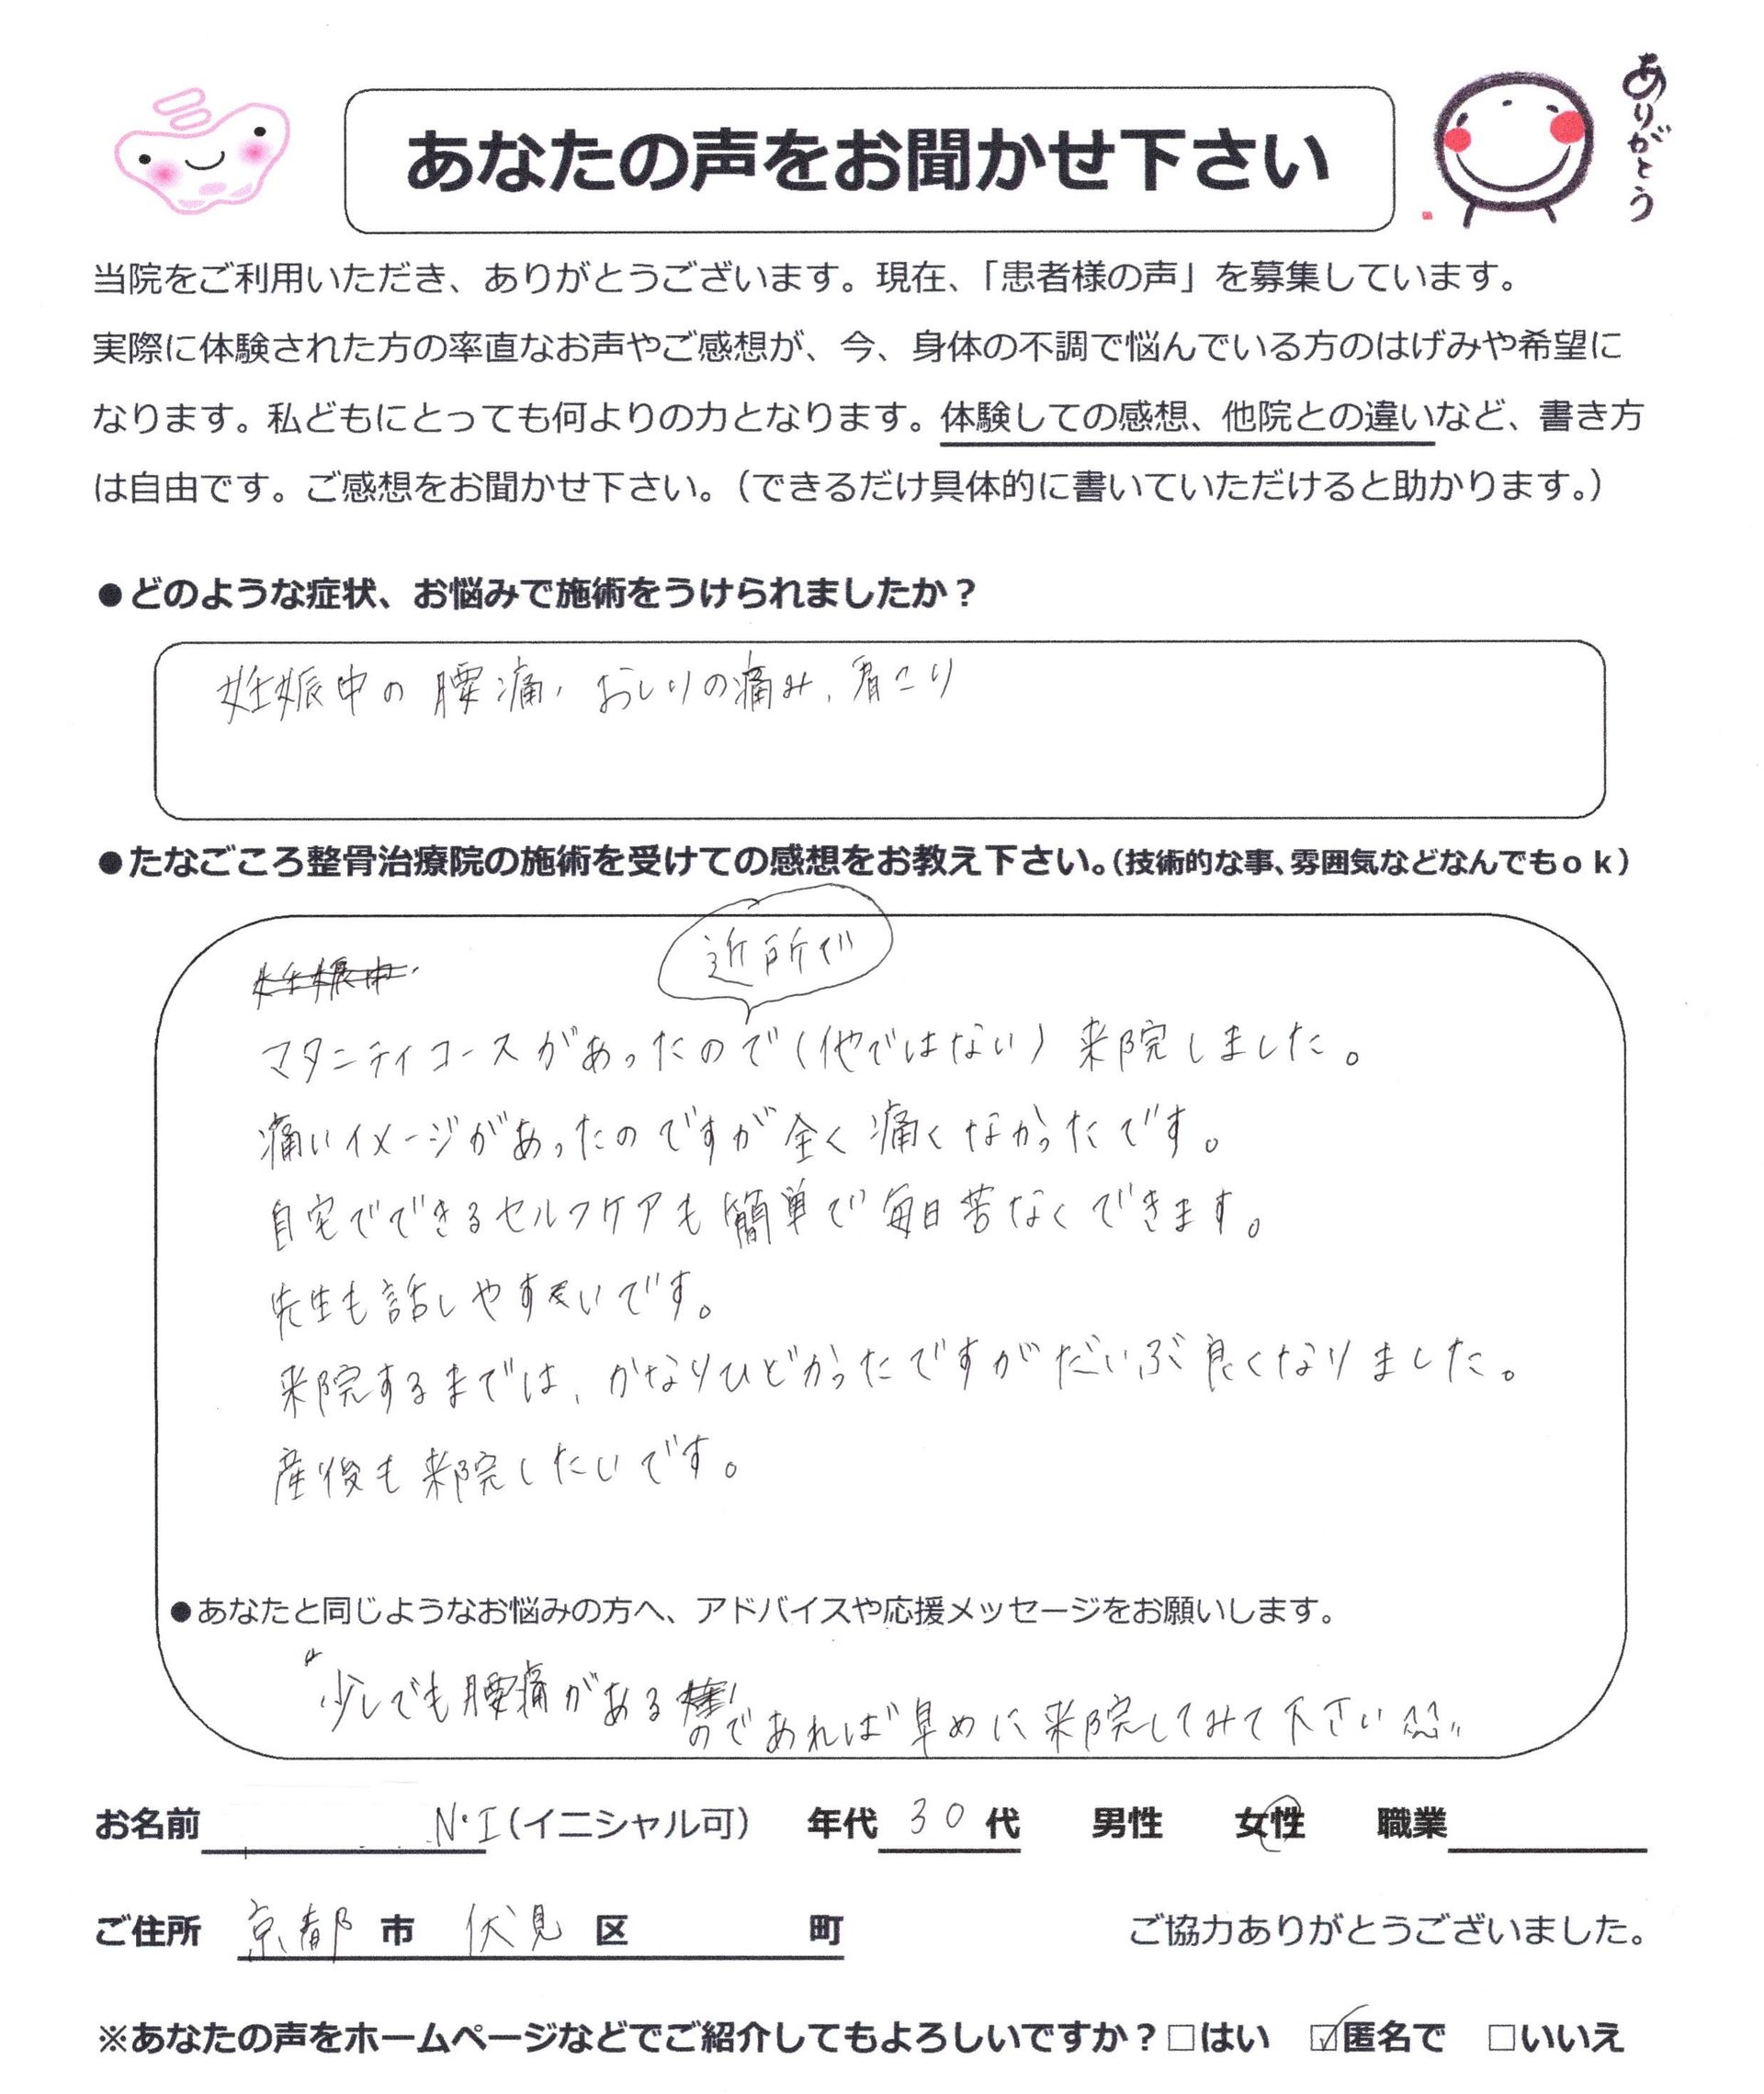 あなたの声をお聞かせ下さい
ありがとう
当院をご利用いただき、ありがとうございます。現在、「患者様の声」を募集しています。
実際に体験された方の率直なお声やご感想が、今、身体の不調で悩んでいる方のはげみや希望に
なります。私どもにとっても何よりの力となります。体験しての感想、他院との違いなど、書き方
は自由です。ご感想をお聞かせ下さい。（できるだけ具体的に書いていただけると助かります。）
●どのような症状、お悩みで施術をうけられましたか？
妊娠中の腰痛、おしりの痛み、肩こり
●たなごころ整骨治療院の施術を受けての感想をお教え下さい。（技術的な事、雰囲気などなんでもｏｋ）
妊娠中
近所で
マタニティコースがあったので（他ではない）来院しました。
痛いイメージがあったのですが全く痛くなかったです。
自宅でできるセルフケアも簡単で毎日苦なくできます。
先生も話しやすいです。
来院するまでは、かなりひどかったですがだいぶ良くなりました。
産後も来院したいです。
●あなたと同じようなお悩みの方へ、アドバイスや応援メッセージをお願いします。
"少しでも腰痛がある
のであれば早めに来院してみて下さい"
お名前 N・I（イニシャル可） 年代 30 代 男性 女性 職業
ご住所 京都 市 伏見 区 町 ご協力ありがとうございました。
※あなたの声をホームページなどでご紹介してもよろしいですか？□はい ☑匿名で □いいえ